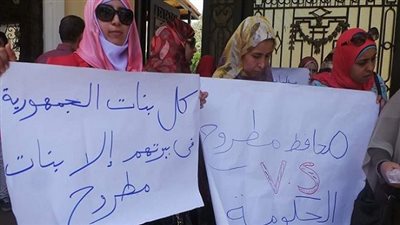 كل بنات الجمهورية
فى بيتهم إلا بنات
مطروح
محافظ مطروح
V.S
الحكومية